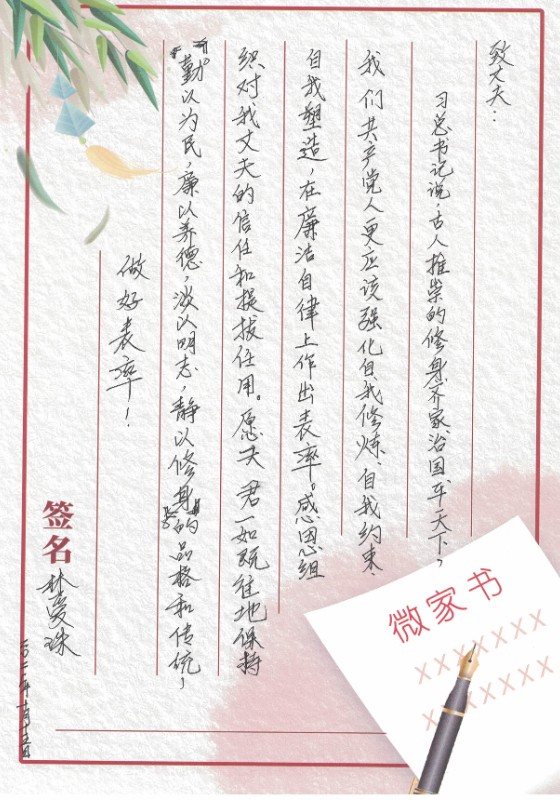 致丈夫：
习总书记说，古人推崇的修身齐家治国平天下，
我们共产党人更应该强化自我修炼、自我约束、
自我塑造，在廉洁自律上作出表率。感恩组
织对我丈夫的信任和提拔任用。愿夫君一如既往地保持
“勤以为民，廉以养德，淡以明志，静以修身”的品格和传统，
做好表率！
签名 林爱珠
二〇二一年十月十五日
微家书
XXXXXXX
XXXXXXX